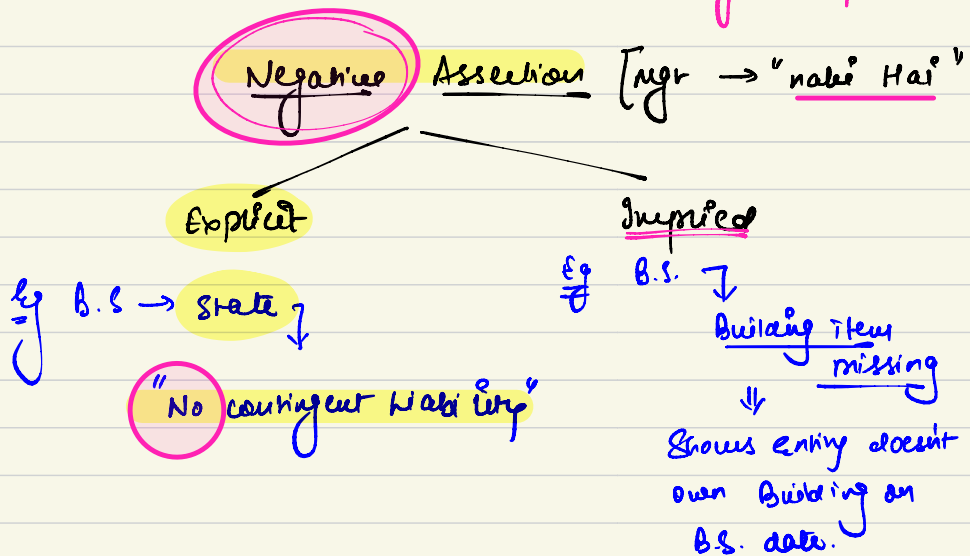 Negative Assertion [mgr → "nahi Hai"
Explicit
Implied
Eg B.S → State
"No contingent Liability"
Eg B.S.
Building item
missing
⇓
Shows entity doesn't
own Building on
B.S. date.